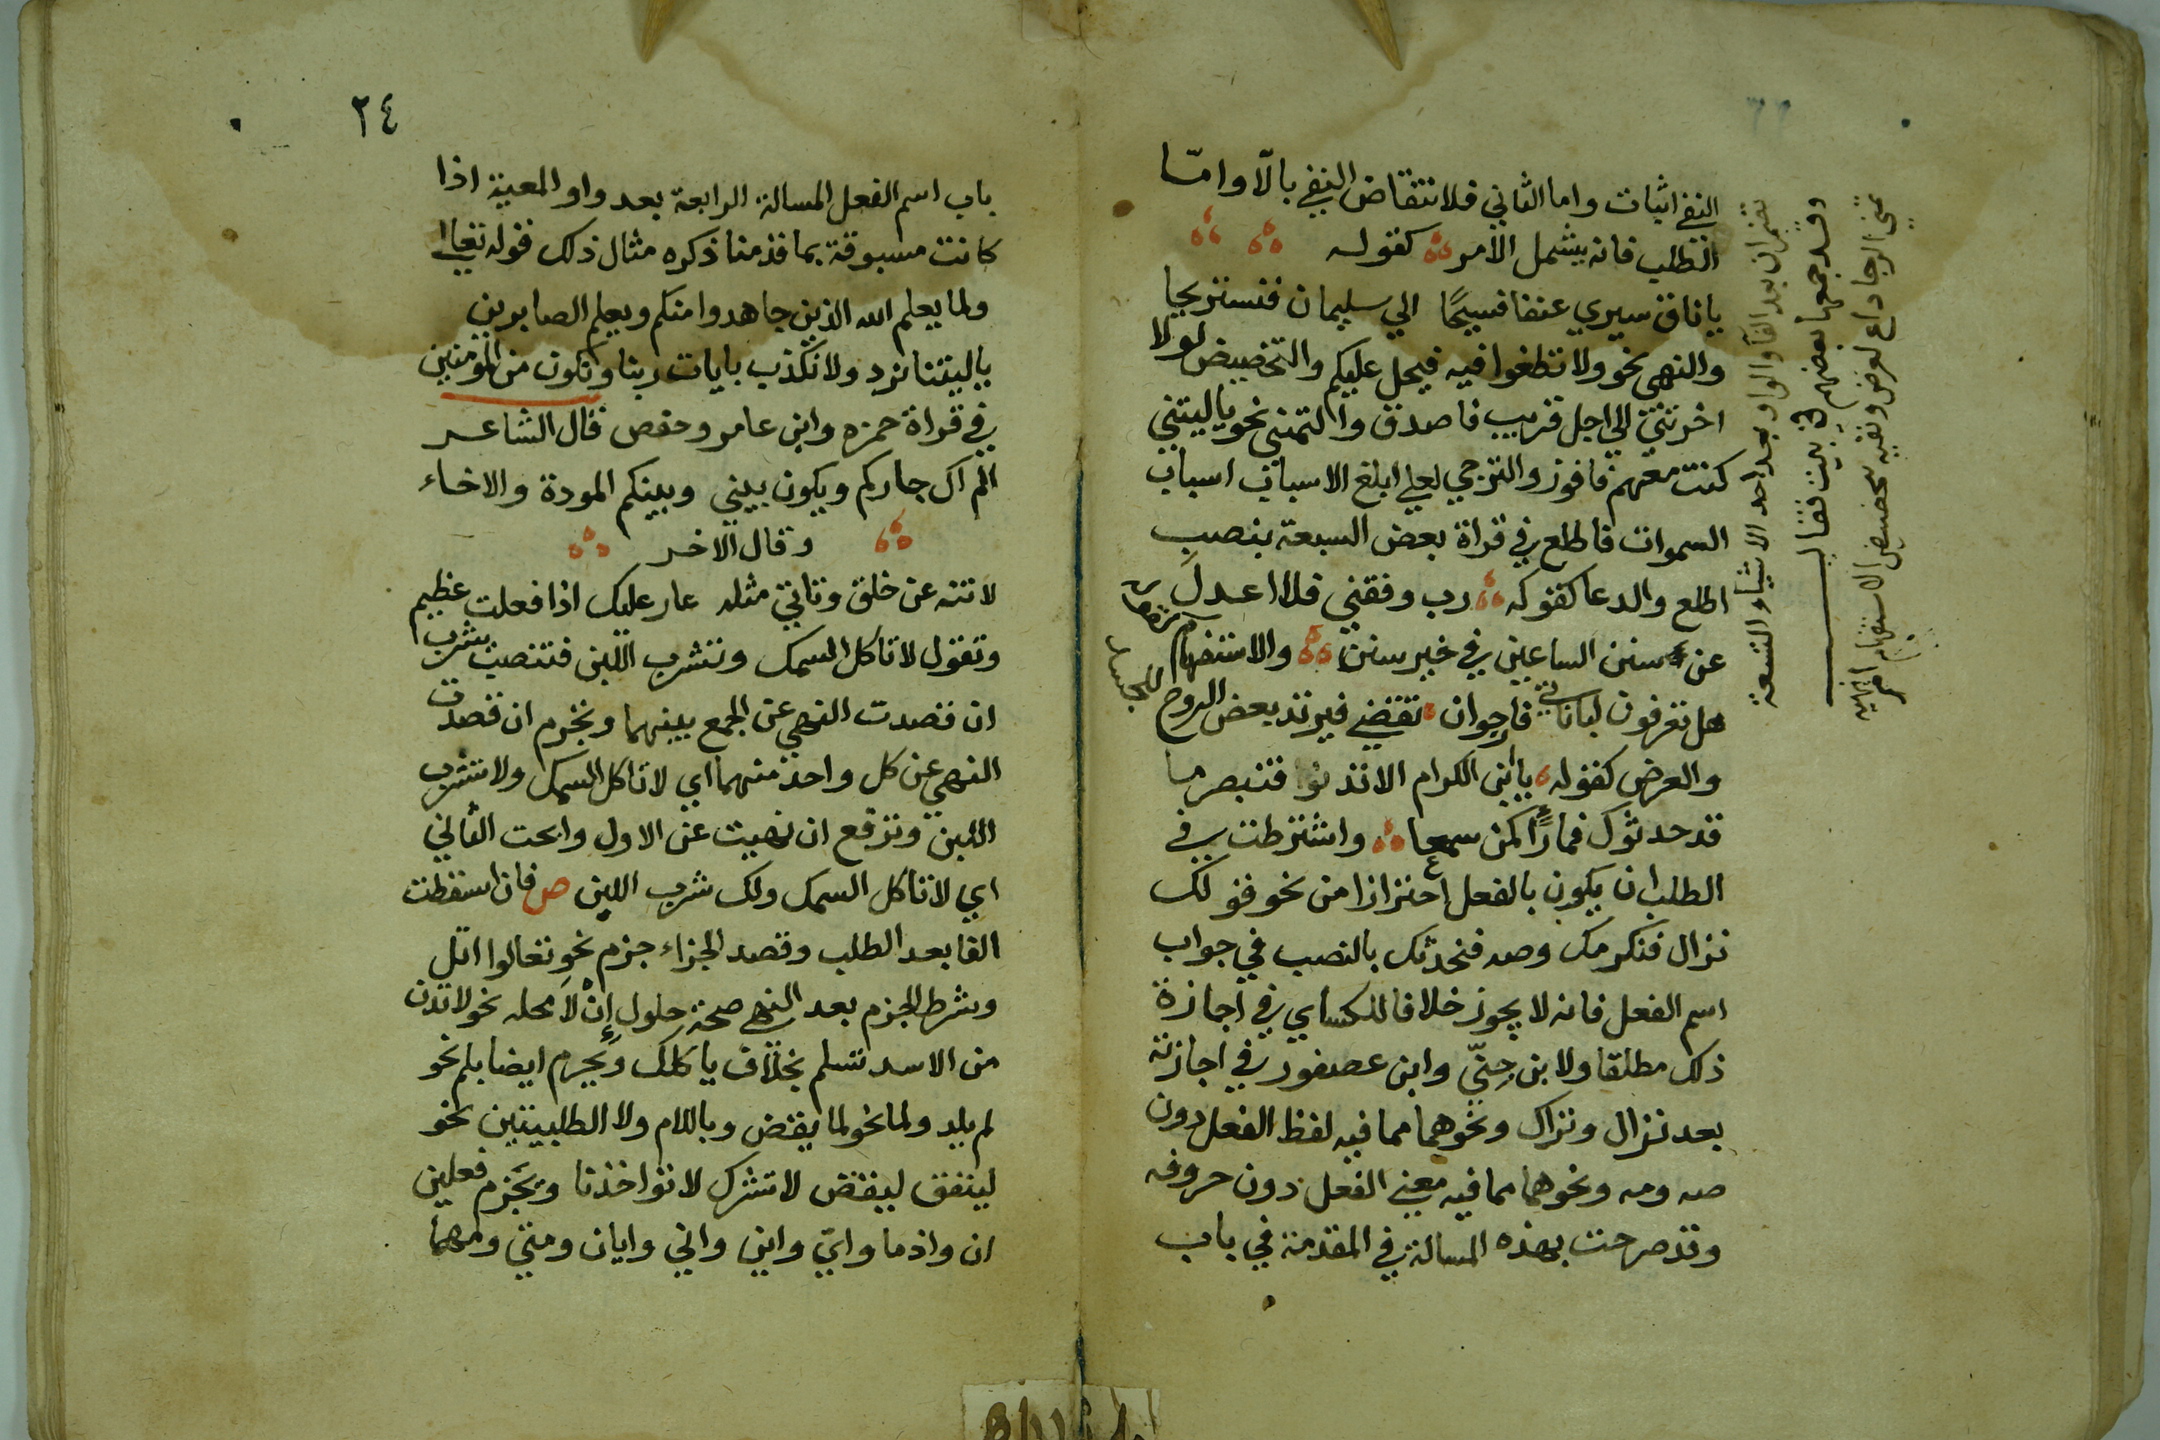 النفي اثبات واما الثاني فلانتقاض النفي بالّا وامّا
الطلب فانه يشمل الامر كقوله
يا ناق سيري عنقا فسيحًا الي سليمان فنستريحا
والنهي نحو ولا تطغوا فيه فيحل عليكم والتحضيض لولا
اخرتني الي اجل قريب فاصدق والتمني نحو يا ليتني
كنت معهم فافوز والترجي لعلي ابلغ الاسباب اسباب
السموات فاطلع في قراة بعض السبعة بنصب
اطلع والدعا كقوله رب وفقني فلا اعدل
عن سنن الساعين في خير سنن والاستفهام
هل تعرفون لباناتي فارجوان تقضي فيرتد بعض الروح
للجسد
والعرض كقوله يا ابن الكرام الا تدنوا فتبصر ما
قد حدثوك فما راءٍ كمن سمعا واشترطت في
الطلب ان يكون بالفعل احترازا من نحو قولك
نزال فنكرمك وصه فنحدثك بالنصب في جواب
اسم الفعل فانه لا يجوز خلافا للكساي في اجازة
ذلك مطلقا ولابن جِنّي وابن عصفور في اجازته
بعد نزال ونزاك ونحوهما مما فيه لفظ الفعل دون
صه ومه ونحوهما مما فيه معني الفعل دون حروفه
وقد صرحت بهذه المسالة في المقدمة في باب
تضمر ان بعد الفا والواو بعد احد الاشيا التسعة
وقد جمعها بعضهم في بيت فقال
تمني ارجا داع لعرض ونفيه تحضيض الاستفهام امر
٢٤
باب اسم الفعل المسالة الرابعة بعد واو المعية اذا
كانت مسبوقة بما قدمنا ذكره مثال ذلك قوله تعالي
ولما يعلم الله الذين جاهدوا منكم ويعلم الصابرين
يا ليتنا نرد ولا نكذب بايات ربنا ونكون من المؤمنين
في قراة حمزه وابن عامر وحفص قال الشاعر
الم اك جاركم ويكون بيني وبينكم المودة والاخاء
وقال الاخر
لا تنه عن خلق وتاتي مثله عار عليك اذا فعلت عظيم
وتقول لا تاكل السمك وتشرب اللبن فتنصب تشرب
ان قصدت النهي عن الجمع بينهما وتجزم ان قصدت
النهي عن كل واحد منهما اي لا تاكل السمك ولا تشرب
اللبن وترفع ان نهيت عن الاول وابحت الثاني
اي لا تاكل السمك ولك شرب اللبن ص فان اسقطت
الفا بعد الطلب وقصد الجزاء جزم نحو تعالوا اتل
وشرط الجزم بعد النهي صحة حلول إنْ لا محله نحو لا تدن
من الاسد تسلم بخلاف ياكلك ويجزم ايضا بلم نحو
لم يلد ولما نحو لما يقض وباللام ولا الطلبيتين نحو
لينفق ليقض لا تشرك لا تواخذنا ويجزم فعلين
ان واذما وايّ واين واني وايان ومتي ومهما